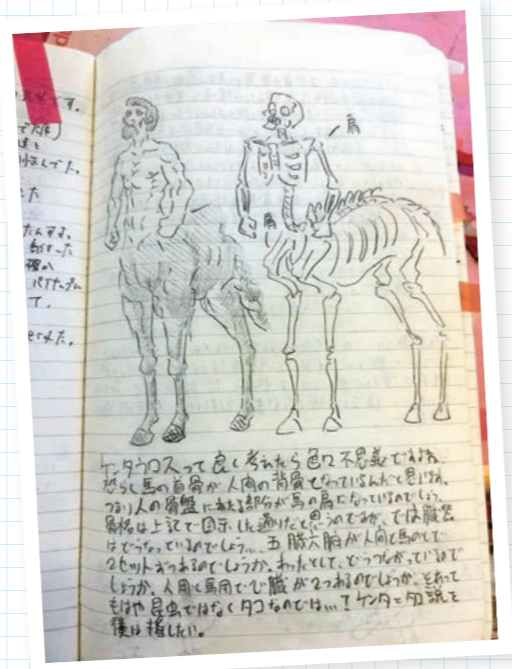 す。
た
て、
肩
肩
ケンタウロスって良く考えたら色々不思議ですよね。
恐らく馬の首骨が人間の背骨となっているんだと思いますね。
つまり人の骨盤にあたる部分が馬の肩になっているのでしょう。
骨格は上記で図示した通りだと思うのですが、では臓器
はどうなっているのでしょう…五臓六腑が人間と馬のとで
2セットずつあるのでしょうか。あったとして、どうつながっているので
しょうか。人用と馬用で心臓が2つあるのでしょうか。それって
もはや昆虫ではなくタコなのでは…!ケンタ=タコ説を
僕は推したい。